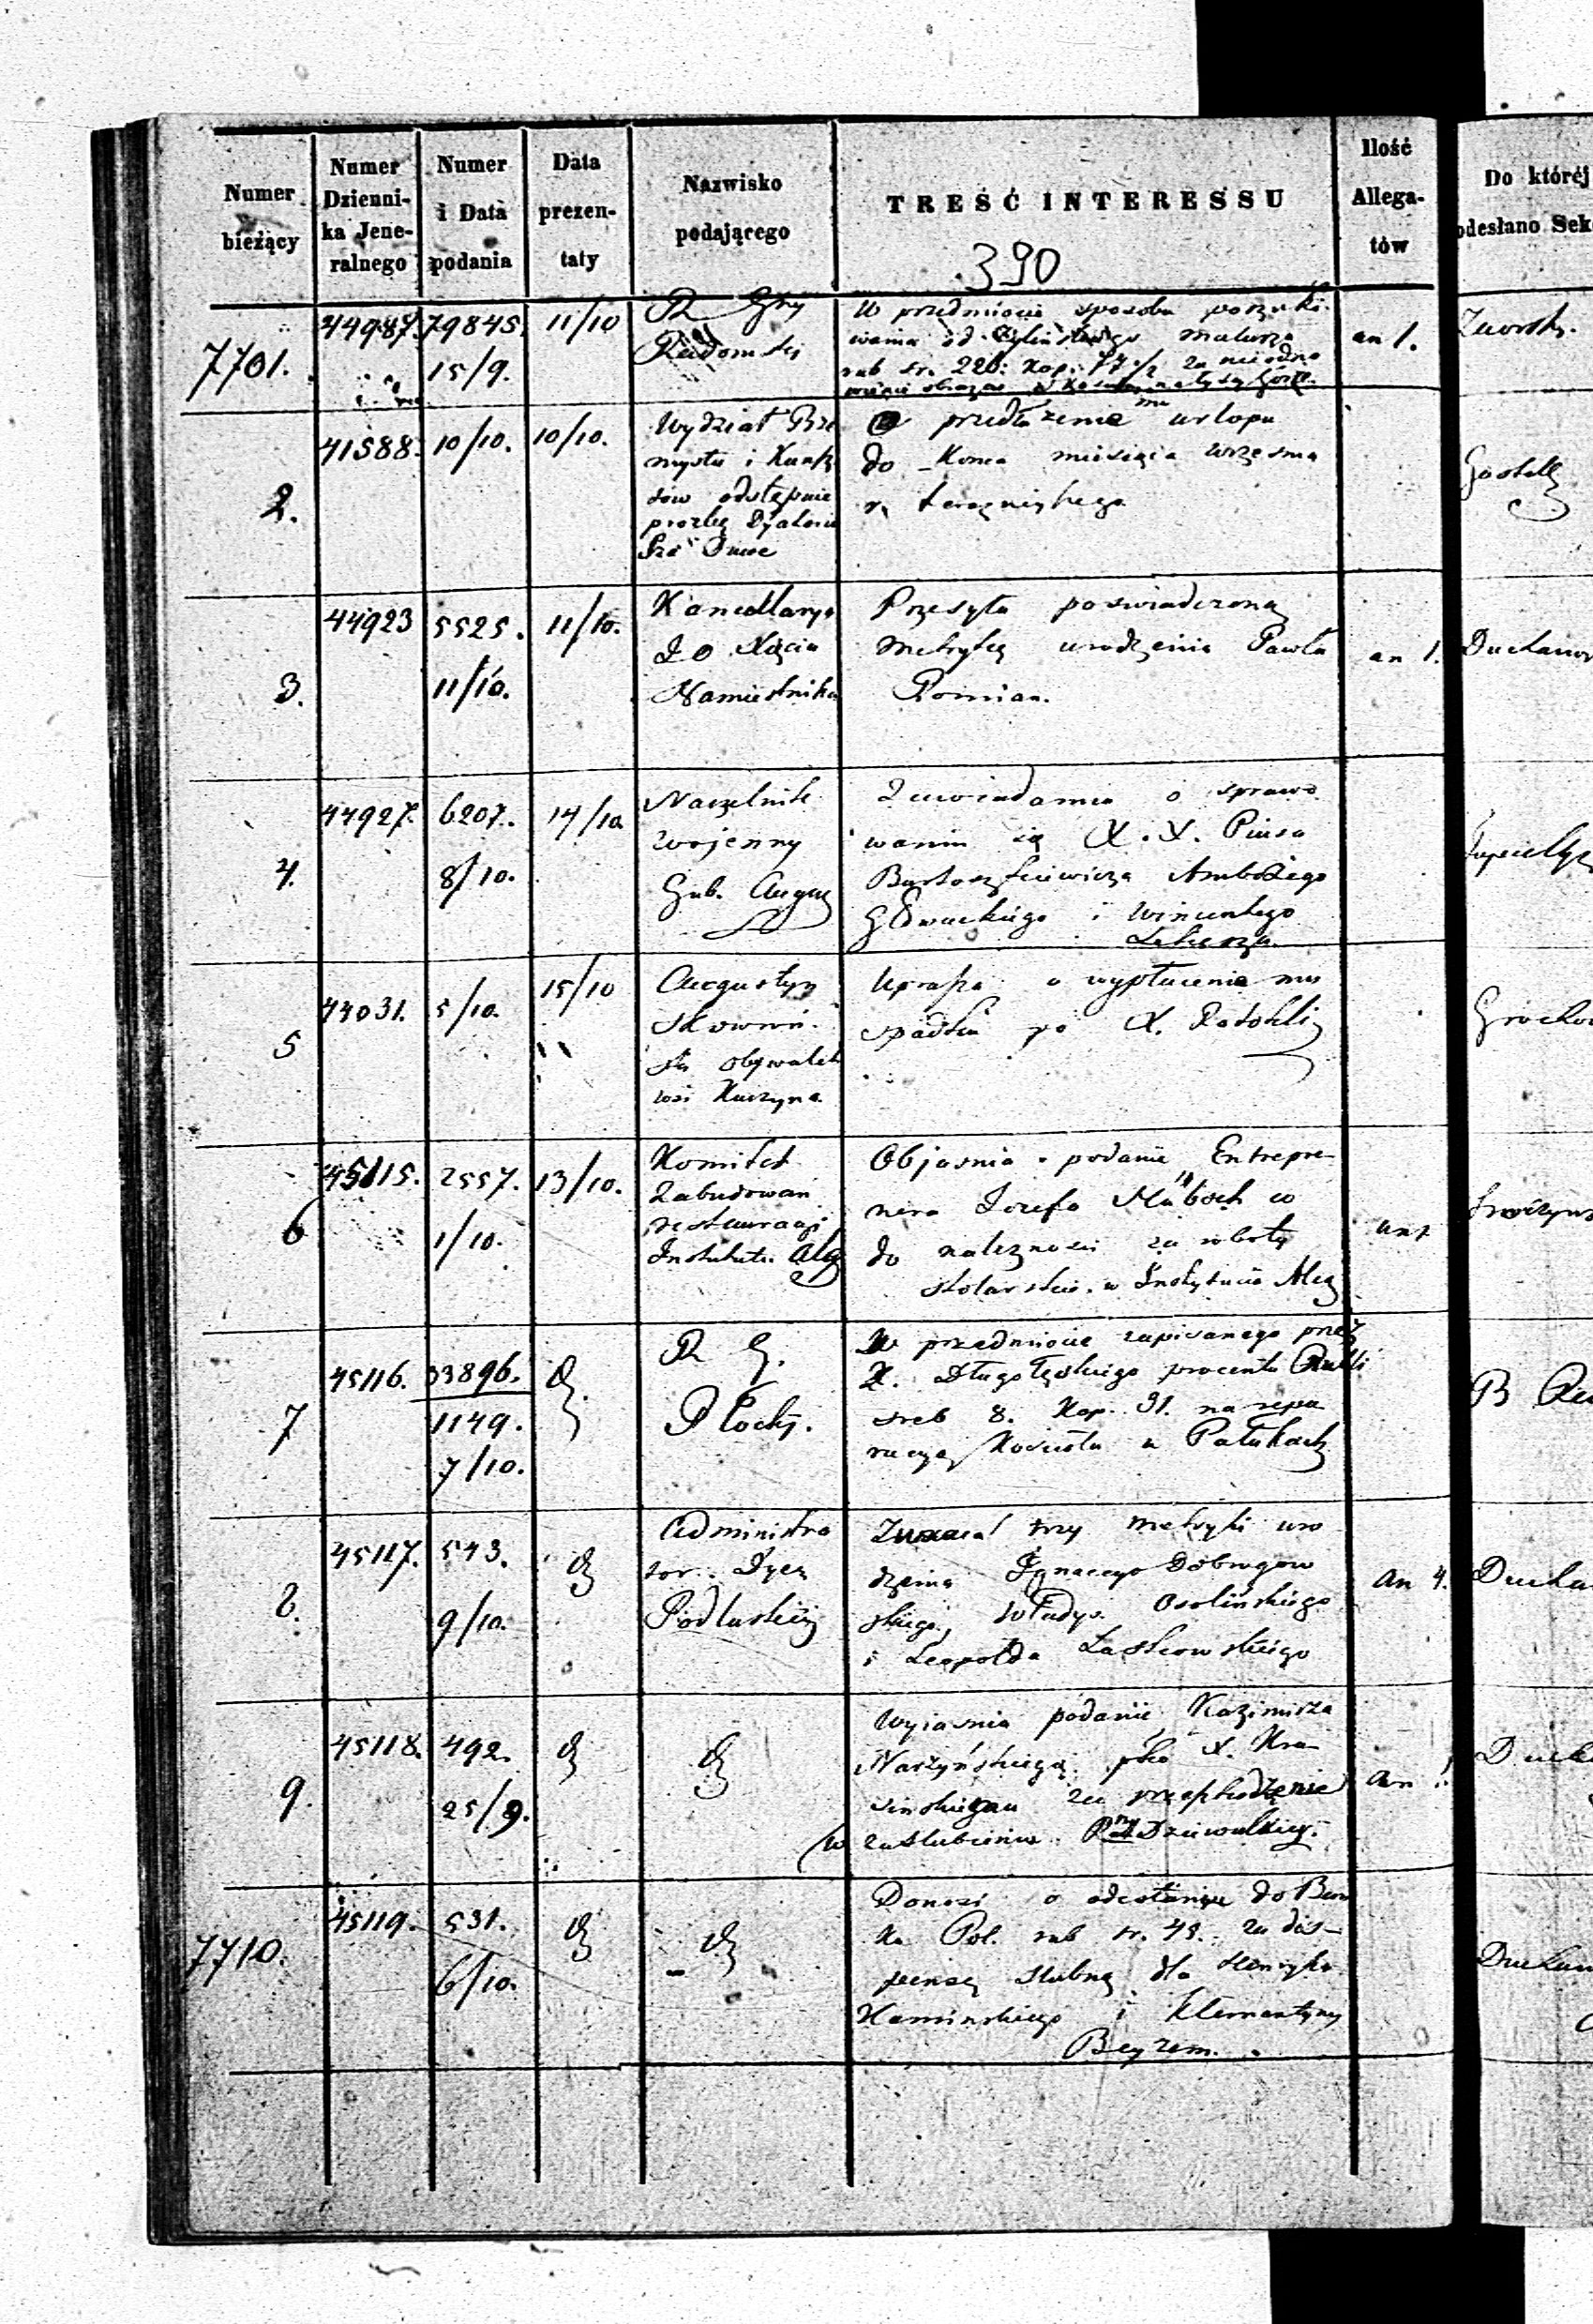 Numer bieżący
Numer Dzienni-ka Jene-ralnego
Numer i Data podania
Data prezen-taty
Nazwisko podającego
TREŚĆ INTERESSU
Ilość Allega-tów
Do któréj
odesłano Sek
390
7701.
44987.
79845.
15/9.
11/10
R Gny
Radomski
W przedmiocie sposobu poszuki-
wania od malarza
rub sr. 220: kop. 57 1/2 za
an 1.
2.
41588.
10/10.
10/10.
Wydział Prze
mysłu i Kunsz
tów odstępuie
prozbę
przedłużenie mu urlopu
do Konca miesiąca Września
r. terazniejszego
3.
44923
5525.
11/10.
11/10.
Kancellarya
J O Xięcia
Namiestnika
Przesyła poswiadczoną
Metrykę urodzenia Pawła
Pomian.
an 1.
4.
44927.
6207.
8/10.
14/10
Naczelnik
Wojenny
Gub. Augus
Zawiadamia o sprawo
waniu się X. X. Piusa
Bartoszkiewicza Ambrożego
Głowackiego i Wincentego
5
44031.
5/10.
15/10
Augustyn
Skowroń
ski obywatel
wsi Kuczyna
Uprasza o wypłacenie mu
spadku po X.
6
45115.
2557.
1/10.
13/10.
Komitet
Zabudowań
restauracji
Instytutu Alex
Objasnia podanie Entrepre-
nera Józefa co
do należnosci za roboty
stolarskie w Instytucie Alex
7
45116.
33896.
1149.
7/10.
R G.
Płocki.
W przedmiocie zapisanego przez
X. Długołęckiego procentu Rubli
sreb 8. Kop. 31. na repa
racyą Kościoła w Pałukach
8.
45117.
543.
9/10.
Administra
tor Dyec
Podlaskiej
Zwraca trzy metryki uro
dzenia Ignacego Dobrogow
skiego, Władys. Osolińskiego
i Leopolda Laskowskiego
an 4.
9.
45118.
492.
25/9.
Wyjasnia podanie Kazimirza
Narzyńskiego pko X. Kra
sinskiemu za przeszkodzenie
w zaslubieniu
an
7710.
45119.
531.
6/10.
Donosi o odesłaniu do Ban
ku Pol. rub sr. 45. za dis-
pensę slubną dla Henryka
Kaminskiego i Klementyny
Beyzem.